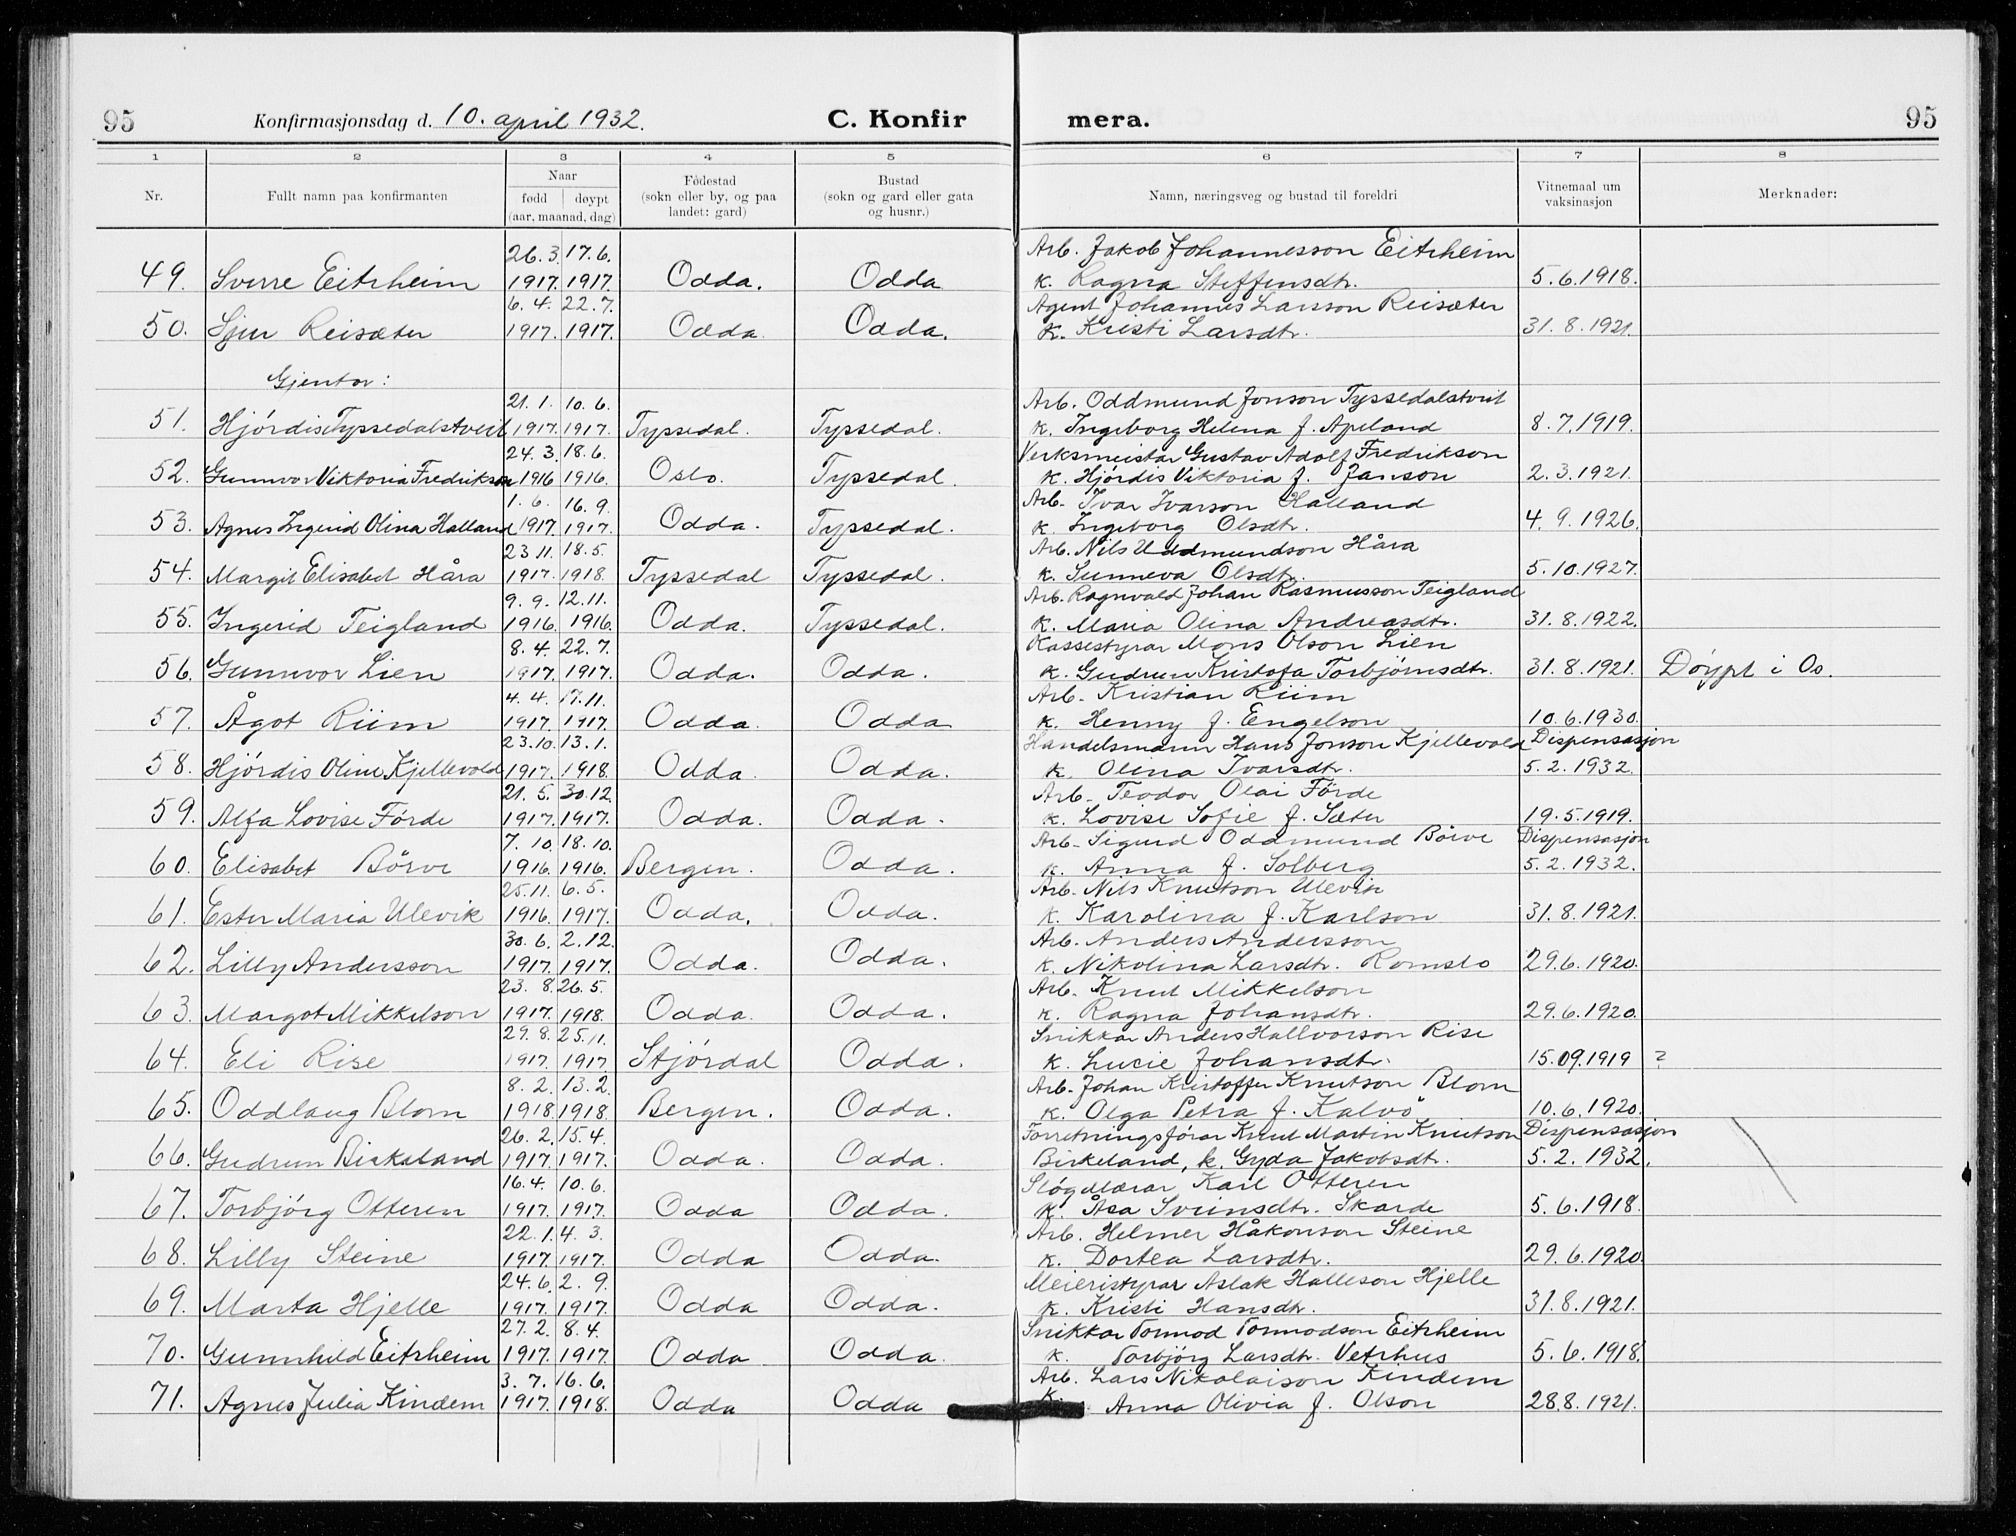 95 Konfirmasjonsdag d. 10. april 1932. C. Konfir mera. 95
1 2 3 4 5 6 7 8
Nr. Fullt namn paa konfirmanten Naar fødd (aar, maanad, dag) døypt Fødestad (sokn eller by, og paa landet: gard) Bustad (sokn og gard eller gata og husnr.) Namn, næringsveg og bustad til foreldri Vitnemaal um vaksinasjon Merknader:
26.3. 17.6. Arb. Jakob Johannesson Eitrheim
49. Sverre Eitrheim 1917. 1917. Odda. Odda K. Ragna Steffensdtr. 5.6.1918.
6.4. 22.7. Agent Johannes Larsson Reisæter
50. Sjur Reisæter 1917. 1917. Odda. Odda. K. Kristi Larsdtr. 31.8.1921.
Gjentor:
21.1. 10.6. Arb. Oddmund Jonson Tyssedalstveit
51. Hjørdis Tyssedalstveit 1917. 1917. Tyssedal. Tyssedal. K. Ingeborg Helena f. Apeland 8.7.1919.
24.3. 18.6. Verksmeistar Gustav Adolf Fredrikson
52. Gunnvor Viktoria Fredrikson 1916 1916. Oslo. Tyssedal. K. Hjørdis Viktoria f. Janson 2.3.1921.
1.6. 16.9. Arb. Ivar Ivarson Halland
53. Agnes Ingerid Olina Halland 1917. 1917. Odda. Tyssedal. K. Ingeborg Olsdtr. 4.9.1926.
23.11. 18.5. Arb. Nils Uddmundson Håra
54. Margit Elisabet Håra 1917. 1918. Tyssedal Tyssedal. K. Sunneva Olsdtr. 5.10.1927.
9.9. 12.11. Arb. Ragnvald Johan Rasmusson Teigland
55. Ingerid Teigland 1916. 1916. Odda. Tyssedal. K. Maria Olina Andreasdtr. 31.8.1922.
8.4. 22.7. Kassestyrar Mons Olson Lien
56. Gunnvor Lien 1917. 1917. Odda. Odda. K. Gudrun Kristofa Torbjørnsdtr. 31.8.1921. Døypt i Os.
4.4. 17.11. Arb. Kristian Riim
57. Ågot Riim 1917. 1917. Odda. Odda K. Henny f. Engelson 10.6.1930.
23.10. 13.1. Handelsmann Hans Jonson Kjellevold Dispensasjon
58. Hjørdis Oline Kjellevold 1917. 1918. Odda. Odda. K. Olina Ivarsdtr. 5.2.1932.
21.5. 30.12. Arb. Teodor Olai Förde
59. Alfa Lovise Förde 1917. 1917. Odda. Odda. K. Lovise Sofie f. Sæter 19.5.1919.
7.10. 18.10. Arb. Sigurd Oddmund Börve Dispensasjon
60. Elisabet Börve 1916. 1916. Bergen. Odda. K. Anna f. Solberg 5.2.1932.
25.11. 6.5. Arb. Nils Knutson Ulevik
61. Ester Maria Ulevik 1916. 1917. Odda. Odda. K. Karolina f. Karlson 31.8.1921.
30.6. 2.12. Arb. Anders Andersson
62. Lilly Andersson 1917. 1917. Odda. Odda. K. Nikolina Larsdtr. Romslo 29.6.1920.
23.8. 26.5. Arb. Knut Mikkelson
63. Margot Mikkelson 1917. 1918. Odda. Odda. K. Ragna Johansdtr. 29.6.1920.
29.8. 25.11. Snikkar Anders Hallvorson Rise
64. Eli Rise 1917. 1917. Stjördal Odda. K. Lucie Johansdtr. 15.09.1919 ?
8.2. 13.2. Arb. Johan Kristoffer Knutson Blom
65. Oddlaug Blom 1918. 1918. Bergen. Odda. K. Olga Petra f. Kalvö 10.6.1920.
26.2. 15.4. Forretningsförar Knut Martin Knutson Dispensasjon
66. Gudrun Birkeland 1917. 1917. Odda. Odda. Birkeland, k. Gyda Jakobsdtr. 5.2.1932.
16.4. 10.6. Sløgdlærar Karl Otteren
67. Torbjørg Otteren 1917. 1917. Odda Odda. K. Åsa Sveinsdtr. Skarde 5.6.1918.
22.1. 4.3. Arb. Helmer Håkonson Steine
68. Lilly Steine 1917. 1917. Odda Odda. K. Dortea Larsdtr. 29.6.1920.
24.6. 2.9. Meieristyrar Aslak Halleson Hjelle
69. Marta Hjelle 1917. 1917. Odda Odda. K. Kristi Hansdtr. 31.8.1921.
27.2. 8.4. Snikkar Tormod Tormodson Eitrheim
70. Gunnhild Eitrheim 1917. 1917. Odda Odda. K. Torbjörg Larsdtr. Vetrhus 5.6.1918.
3.7. 16.6. Arb. Lars Nikolaison Kindem
71. Agnes Julia Kindem 1917. 1918. Odda Odda K. Anna Olivia f. Olson 28.8.1921.